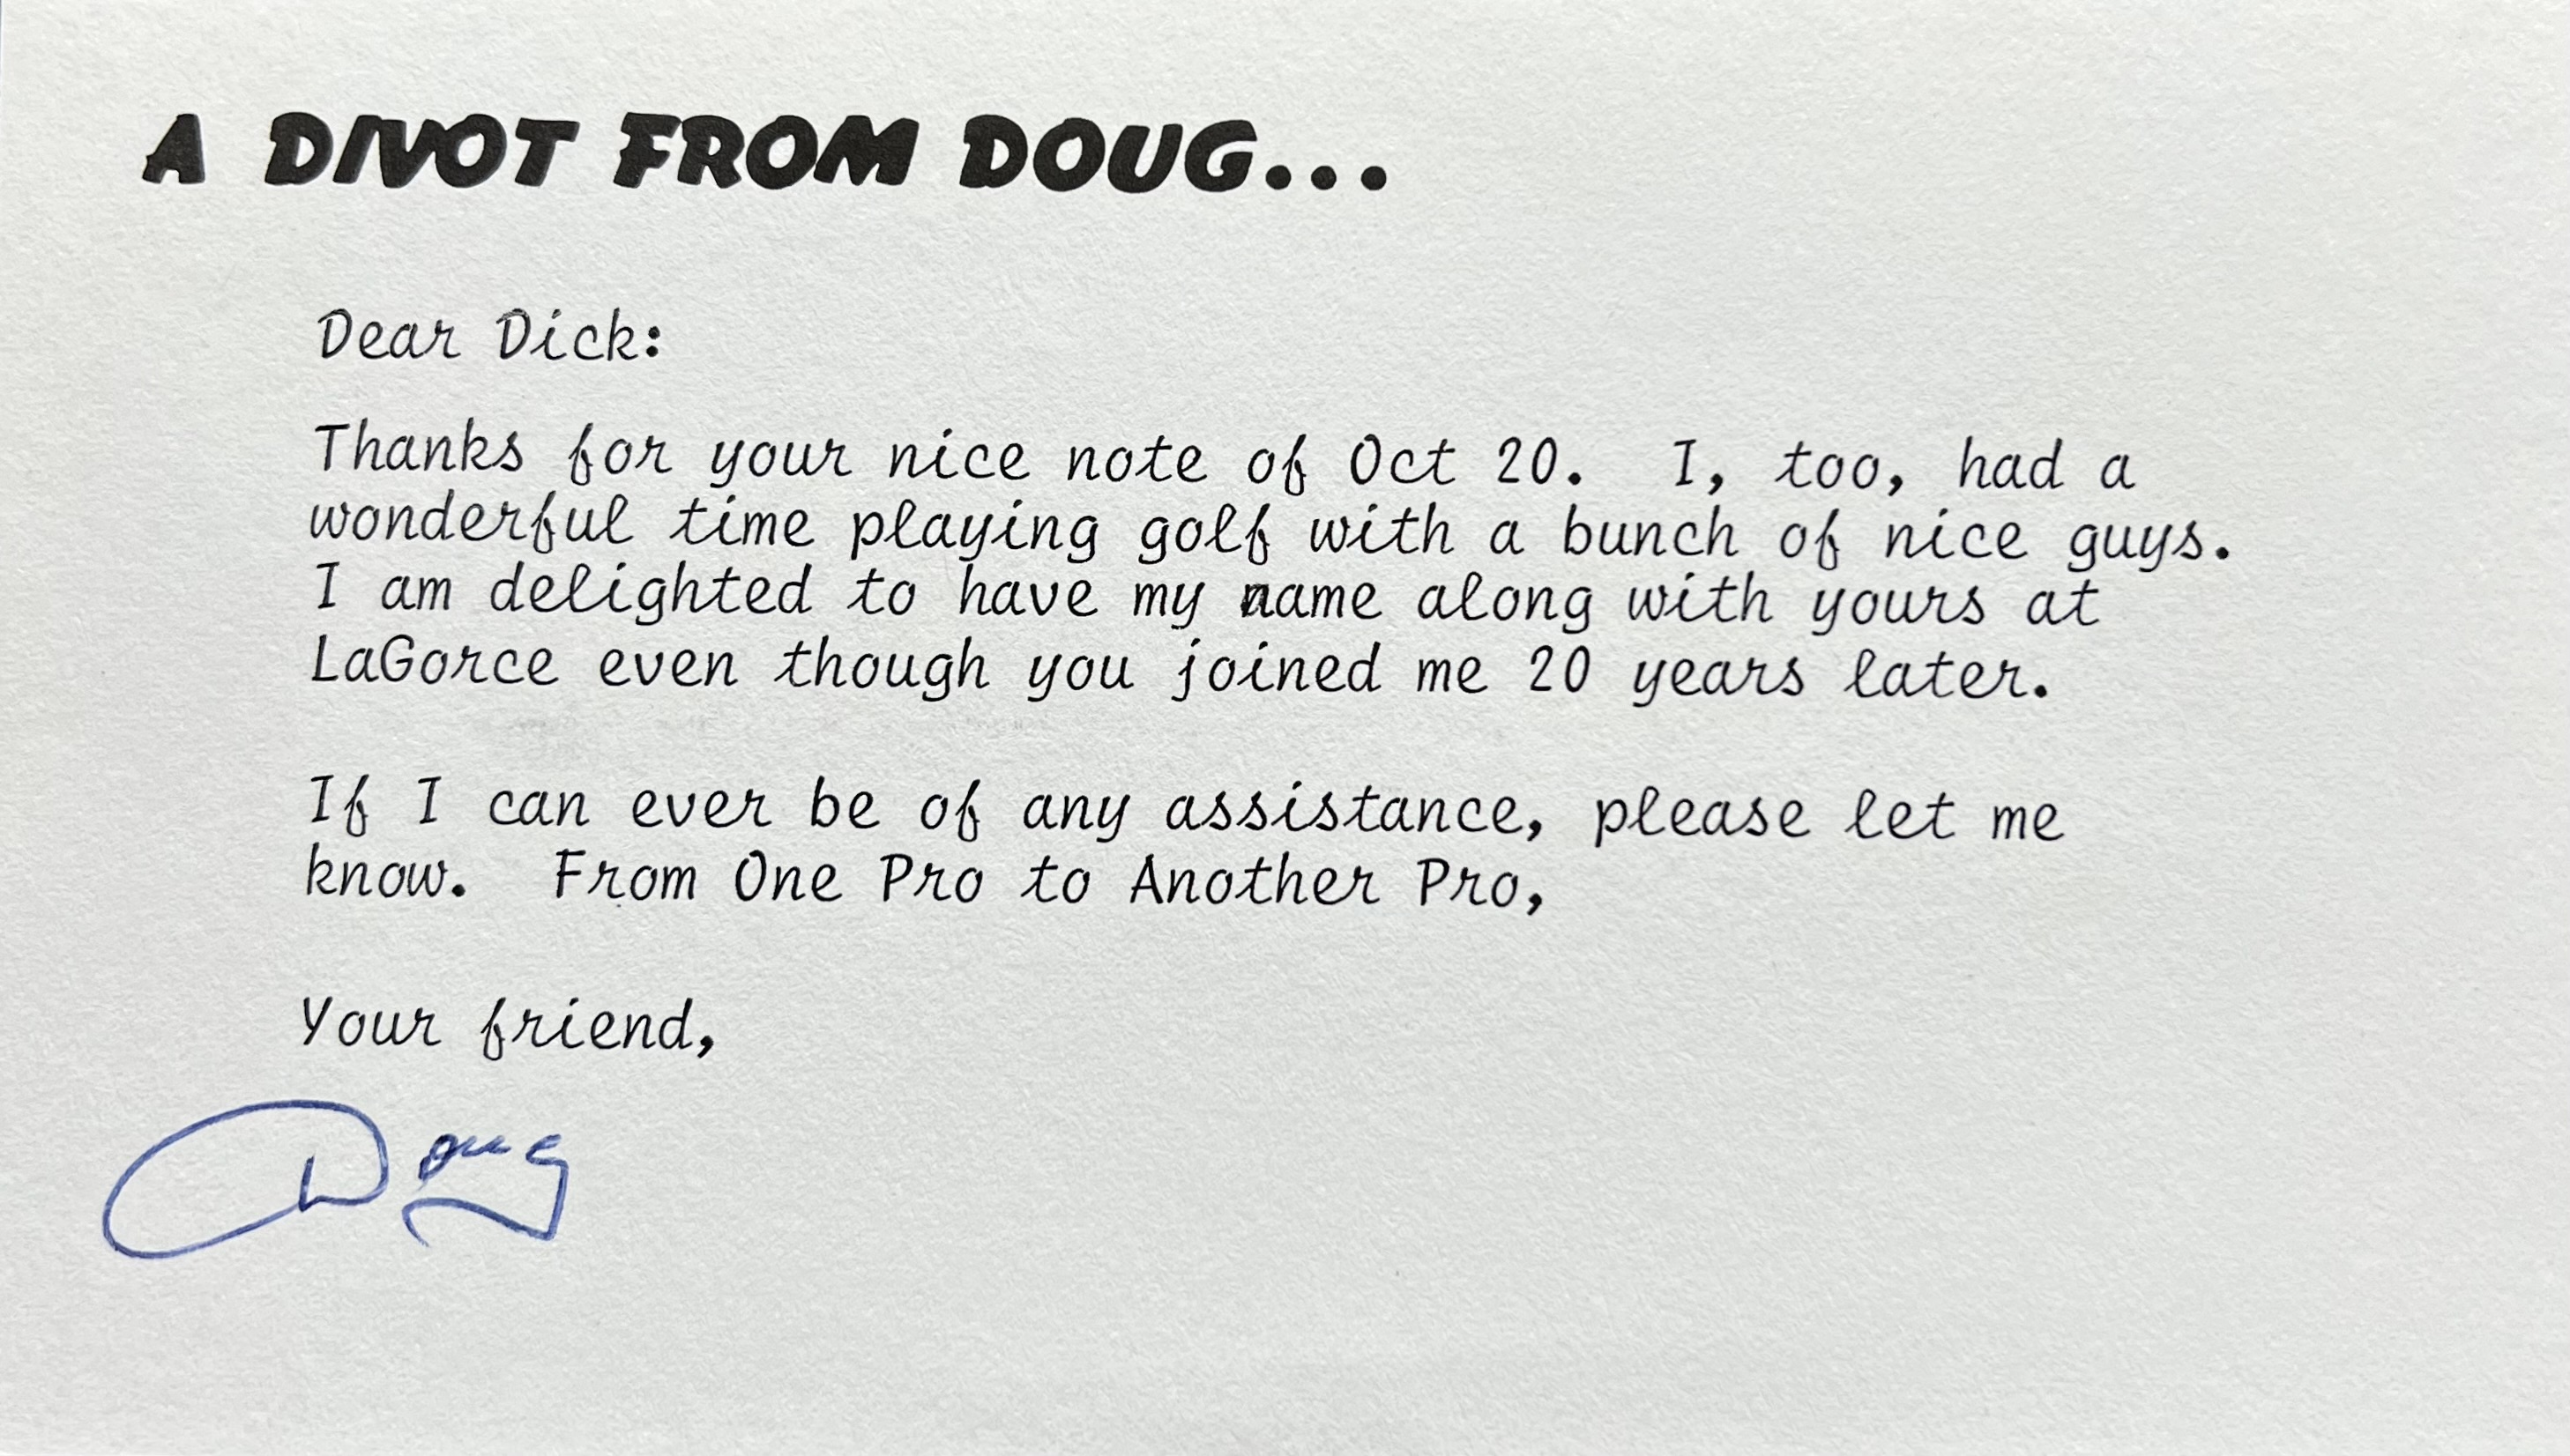 A DIVOT FROM DOUG...
Dear Dick:
Thanks for your nice note of Oct 20.  I, too, had a
wonderful time playing golf with a bunch of nice guys.
I am delighted to have my name along with yours at
LaGorce even though you joined me 20 years later.
If I can ever be of any assistance, please let me
know.  From One Pro to Another Pro,
Your friend,
Doug